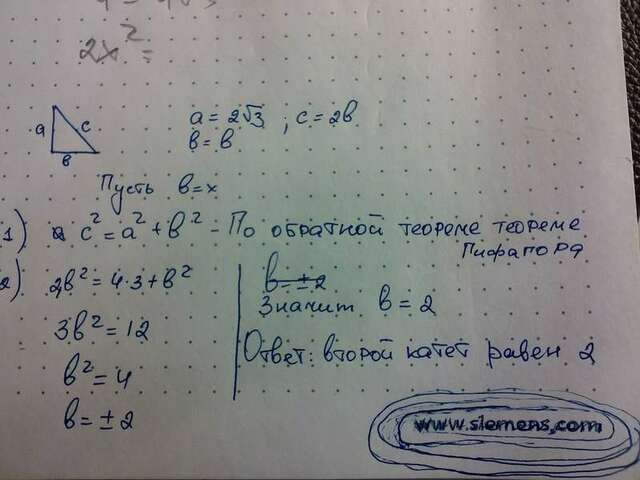 2x² =
a
c
b
a = 2√3 ; c = 2b
b = b
Пусть b = x
1) c² = a² + b² - По обратной теореме теореме
Пифагора
2) 2b² = 4·3 + b²
3b² = 12
b² = 4
b = ± 2
b = ± 2
Значит b = 2
Ответ: второй катет равен 2
www.siemens.com